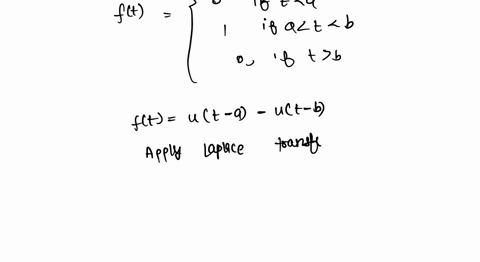 0 if t<a
f(t) = { 1 if a<t<b
0, if t>b
f(t) = u(t-a) - u(t-b)
Apply laplce transfe